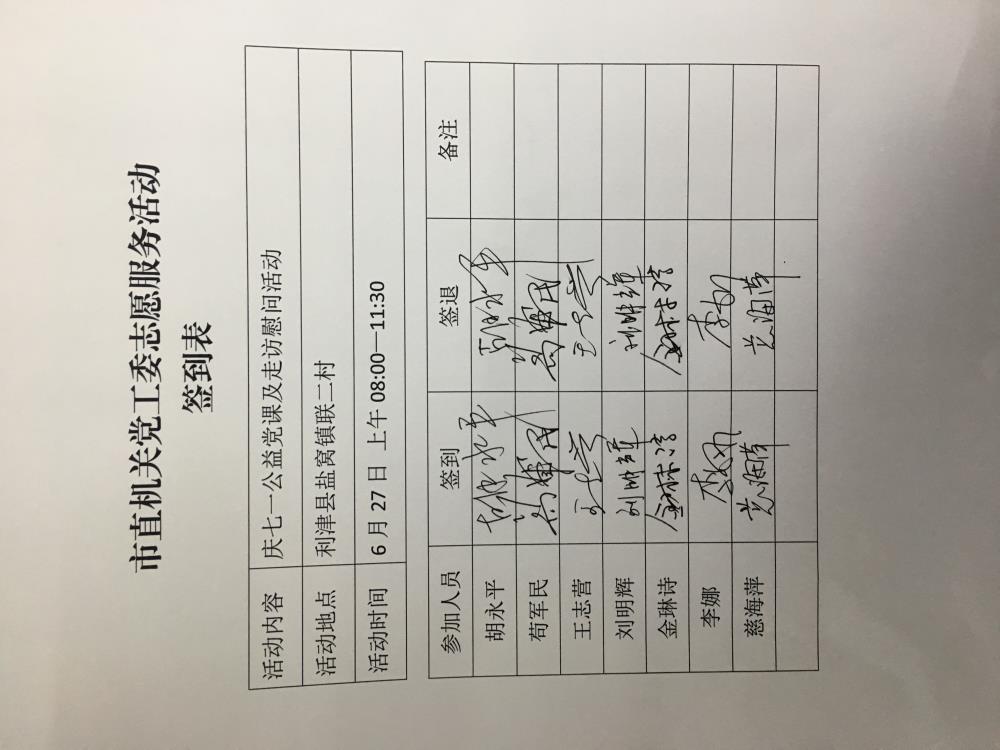 市直机关党工委志愿服务活动
签到表
活动内容 庆七一公益党课及走访慰问活动
活动地点 利津县盐窝镇联二村
活动时间 6月27日 上午 08:00—11:30
参加人员 签到 签退 备注
胡永平 胡永平 胡永平
苟军民 苟军民 苟军民
王志营 王志营 王志营
刘明辉 刘明辉 刘明辉
金琳诗 金琳诗 金琳诗
李娜 李娜 李娜
慈海萍 慈海萍 慈海萍